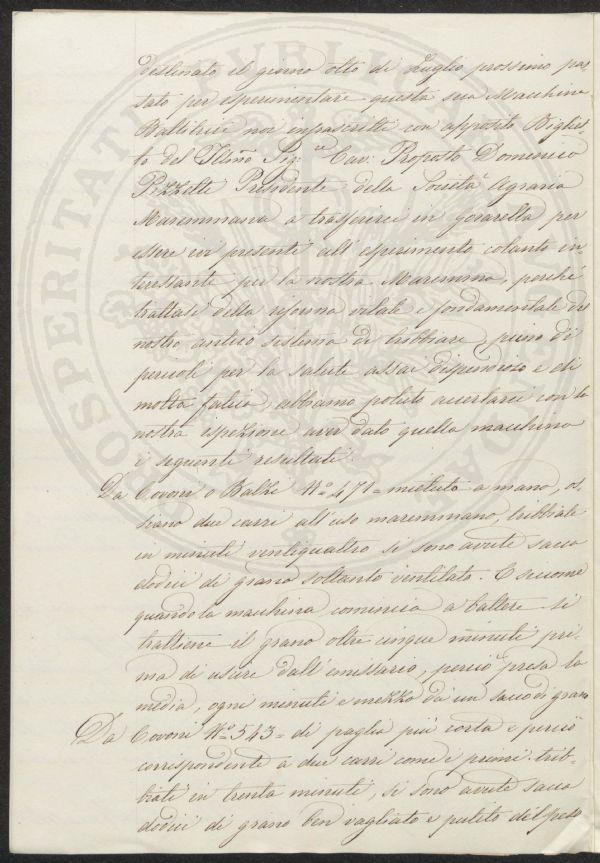 destinato il giorno otto di Luglio prossimo pas-
sato per esperimentare questa sua Macchina
Battitrice noi infrascritti con apposito Bigliet-
to del Illmo Sig: Cav: Proposto Domenico
Pizzetti Presidente della Società Agraria
Maremmana a trasferirci in Gorarella per
essere in presenti all'esperimento cotanto in-
teressante per la nostra Maremma, perché
trattasi della riforma vitale e fondamentale del
nostro antico sistema di tribbiare, pieno di
pericoli per la salute assai dispendioso e di
molta fatica, abbiamo potuto accertarci con la
nostra ispezione aver dato quella macchina
i seguenti resultati
Da Covoni o Balzi No. 471= mietuto a mano, os-
siano due carri all'uso maremmano, tribbiati
in minuti ventiquattro si sono avute sacca
dodici di grano soltanto ventilato. E siccome
quando la macchina comincia a battere si
trattiene il grano oltre cinque minuti pri-
ma di usire dall'emissario, perciò presa la
media, ogni minuti e mezzo dà un sacco di grano
Da Covoni No. 543= di paglia più corta e perciò
corrispondente a due carri come i primi trib-
biati in trenta minuti, si sono avute sacca
dodici di grano ben vagliato e pulito del peso
PROSPERITATI PVBLICAE